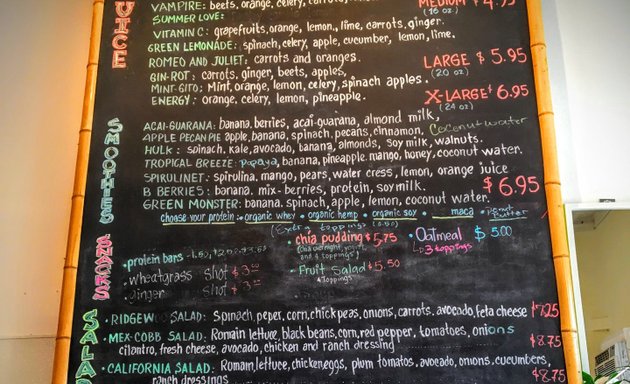 JUICE
VAMPIRE: beets, orange, celery, carrots,
MEDIUM $ 4.95
(16 oz)
SUMMER LOVE:
VITAMIN C: grapefruits, orange, lemon, lime, carrots, ginger.
GREEN LEMONADE: spinach, celery, apple, cucumber, lemon, lime.
LARGE $ 5.95
(20 oz)
ROMEO AND JULIET: carrots and oranges.
GIN-ROT: carrots, ginger, beets, apples,
MINT-GITO: Mint, orange, lemon, celery, spinach apples.
X-LARGE $ 6.95
(24 oz)
ENERGY: orange, celery, lemon, pineapple.
SMOOTHIES
ACAI-GUARANA: banana, berries, acai-guarana, almond milk,
APPLE PECAN PIE apple, banana, spinach, pecans, cinnamon, Coconut water
HULK: spinach, kale, avocado, banana, almonds, soy milk, walnuts.
TROPICAL BREEZE: papaya, banana, pineapple, mango, honey, coconut water.
SPIRULINET: spirulina, mango, pears, water cress, lemon, orange juice
B BERRIES: banana, mix-berries, protein, soy milk.
$ 6.95
GREEN MONSTER: banana, spinach, apple, lemon, coconut water.
choose your protein: organic whey • organic hemp • organic soy • maca • Peanut Butter
(Extra toppings 0.50)
SNACKS
• protein bars
• chia pudding $ 5.75
and 4 toppings)
• Oatmeal $ 5.00
3 toppings
• wheatgrass shot $ 3.00
• ginger shot $ 3.00
• Fruit Salad $ 5.50
4 toppings
SALADS
• RIDGEW SALAD: Spinach, peper, corn, chickpeas, onions, carrots, avocado, feta cheese $ 7.25
• MEX-COBB SALAD: Romain lettuce, black beans, corn, red pepper, tomatoes, onions
cilantro, fresh cheese, avocado, chicken and ranch dressing $8.75
• CALIFORNIA SALAD: Romain, lettuce, chicken, eggs, plum tomatoes, avocado, onions, cucumbers,
ranch dressings $8.75